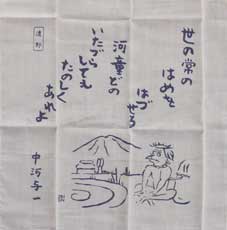 世の常の
はめを
はづせる
河童どの
いたづら
して
たのしく
あれよ
中河与一
遠野